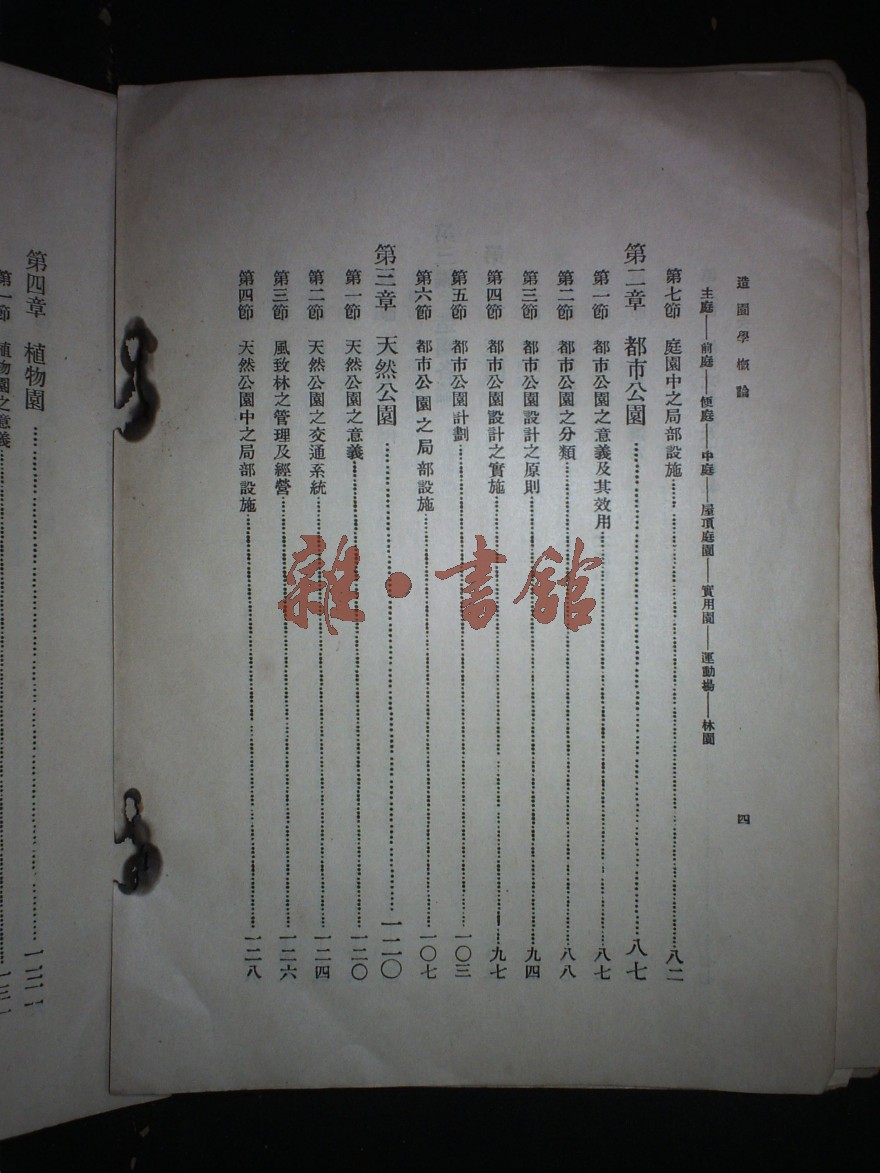 造園學概論
四
主庭——前庭——便庭——中庭——屋頂庭園——實用園——運動場——林園
第七節 庭園中之局部設施……八二
第二章 都市公園……八七
第一節 都市公園之意義及其效用……八七
第二節 都市公園之分類……八八
第三節 都市公園設計之原則……九四
第四節 都市公園設計之實施……九七
第五節 都市公園計劃……一〇三
第六節 都市公園之局部設施……一〇七
第三章 天然公園……一二〇
第一節 天然公園之意義……一二〇
第二節 天然公園之交通系統……一二四
第三節 風致林之管理及經營……一二六
第四節 天然公園中之局部設施……一二八
第四章 植物園……
第一節 植物園之意義……
雜·書館